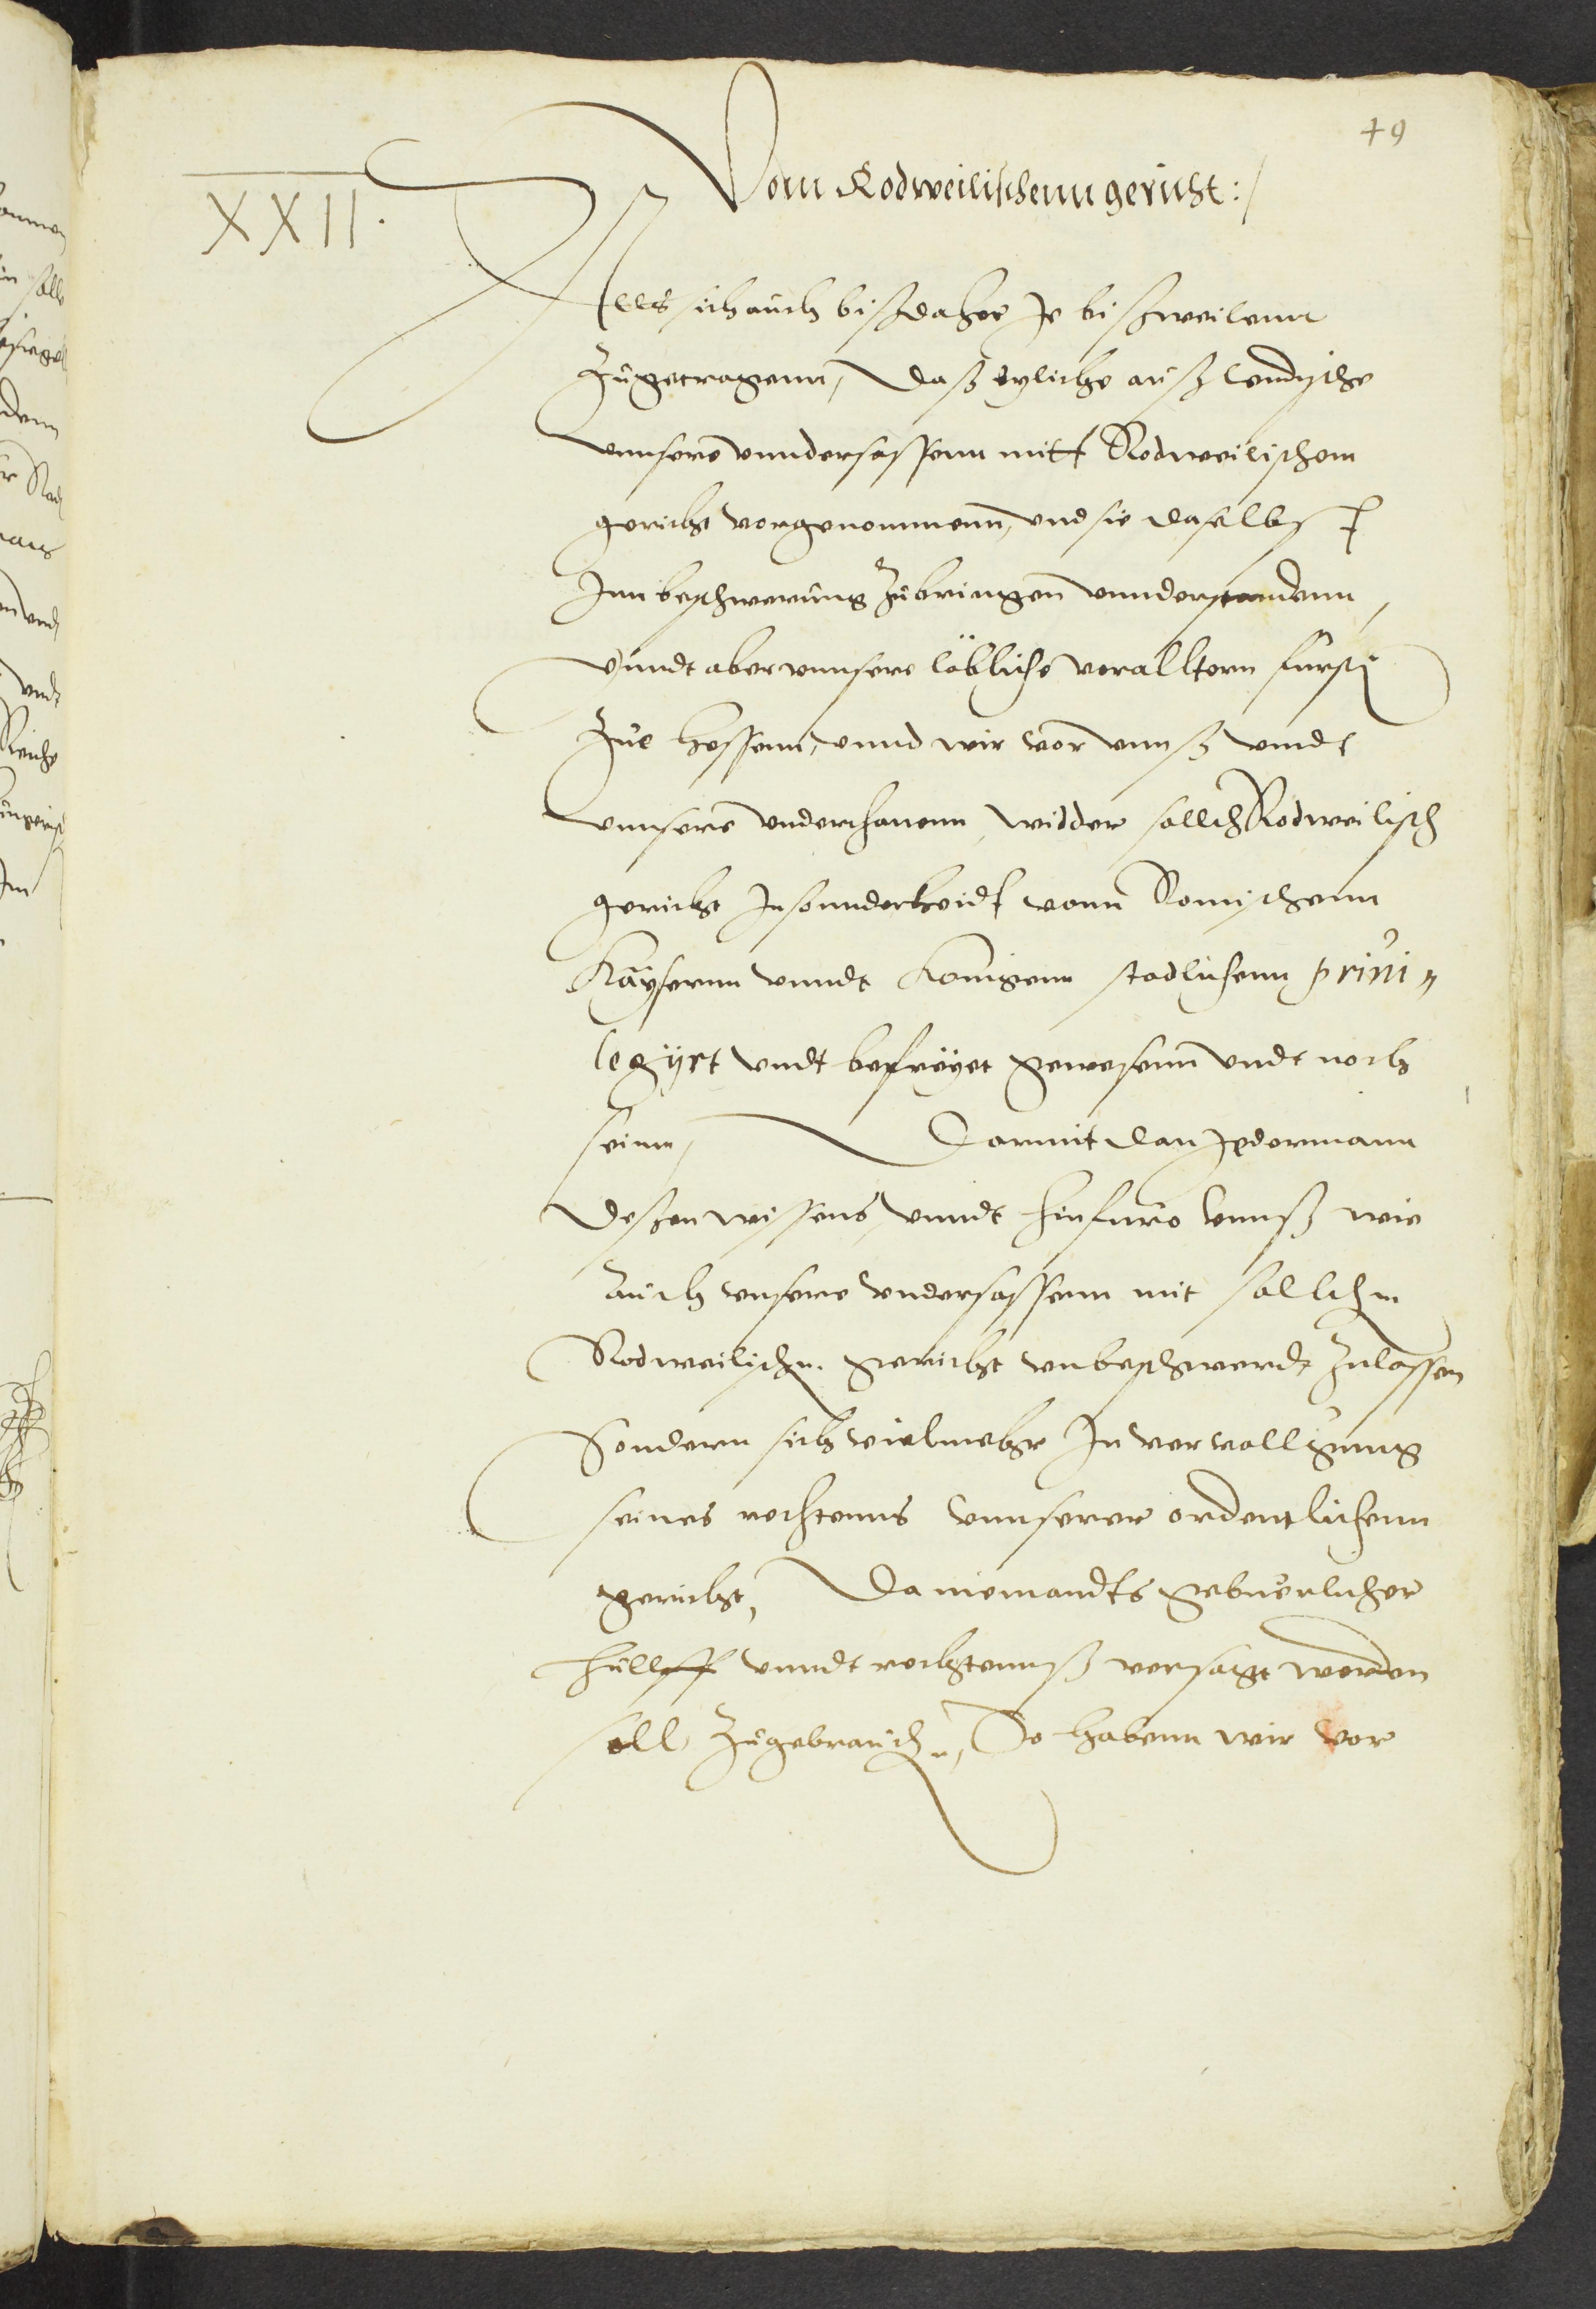 79
Vom Rodweilischenn gericht:/
XXII.
Alls sich auch bißdaher Je bißweilenn
zugetragenn, daß etzliche außlendische
unnsere unndersassenn mitt Rodweilischem
gericht vorgenommenn, und sie daselbst
Inn beschwerung zubringen unnderstandenn,
Unndt aber unnsere löbliche voralltern fürste
zue Hessenn, unnd wir vor unnß unndt
unnsere underthanenn, widder sollch Rodweilisch
gericht Insonnderheidt vonn Romischenn
Kaysernn unndt Konigenn stadlichenn privi„
legyrt undt befreyet gewesenn undt noch
seinn, Darmit dan Jedermann
deßen wissens, unndt hinfuro unnß wie
auch unsere undersassenn mit sollchem
Rodweilischen gericht unbeschwerdt zulassen
Sondern sich vielmehr In vervollgung
seines rechtenns unnserer ordentlichenn
gericht, Da niemandts gebuerlicher
hüllff unndt rechtennß versagt werden
soll, zugebrauchen, So habenn wir vor